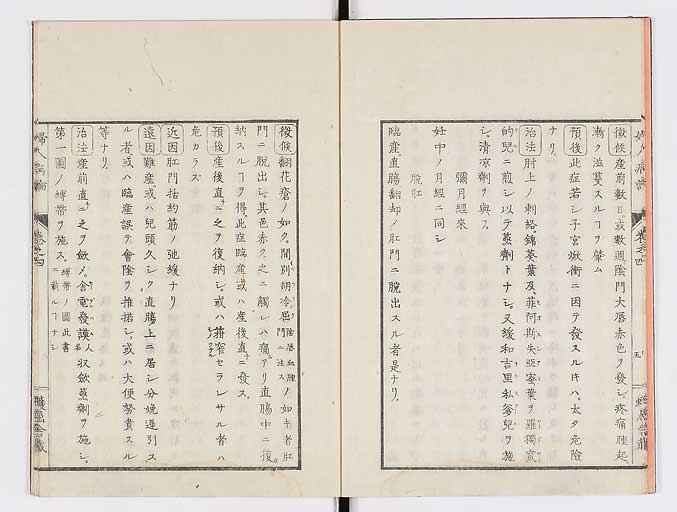 徴候産前數日。或數週陰門大唇赤色ヲ發シ。疼痛腫起。
漸ク滋蔓スルヿヲ肇ム
預後此症若シ子宮焮衝ニ因テ發スルキハ。太タ危險
ナリ。
治法肘上ノ刺絡。錦葵葉及。菲阿斯失亞密葉ヲ羅獨
的兒ニ煎シ。以テ蒸劑トナシ。又緩和吉里私爹兒ヲ施
シ。清凉劑ヲ與フ。
彌月經來
妊中ノ月經ニ同シ
脫肛
臨産直膓翻却ノ肛門ニ脫出スル者是ナリ。
徴候翻花瘡ノ如ク。間別胡冷屈陰唇血腫門ニ注スノ如キ者肛
門ニ脫出シ。其邑赤ク。之ニ觸レハ痛アリ直膓中ニ復
納スルヿヲ得。此症臨産或ハ産後直ニ發ス。
預後産後直ニ之ヲ復納シ。或ハ窄セラレサル者ハ
危カラズ
近因肛門括約筋ノ弛緩ナリ
遠因難産。或ハ兒頭久シク直膓上ニ居シ分娩遲引ス
ル者。或ハ臨産誤テ會陰ヲ推搭シ。或ハ大便努責スル
等ナリ。
治法産前直ニ之ヲ斂メ。含電發謨人名收斂蒸劑ヲ施シ。
第一圖ノ縛帶ヲ施ス。縛帶ノ圖此書ニ載ルヿナシ
婦人病論
卷之四
五